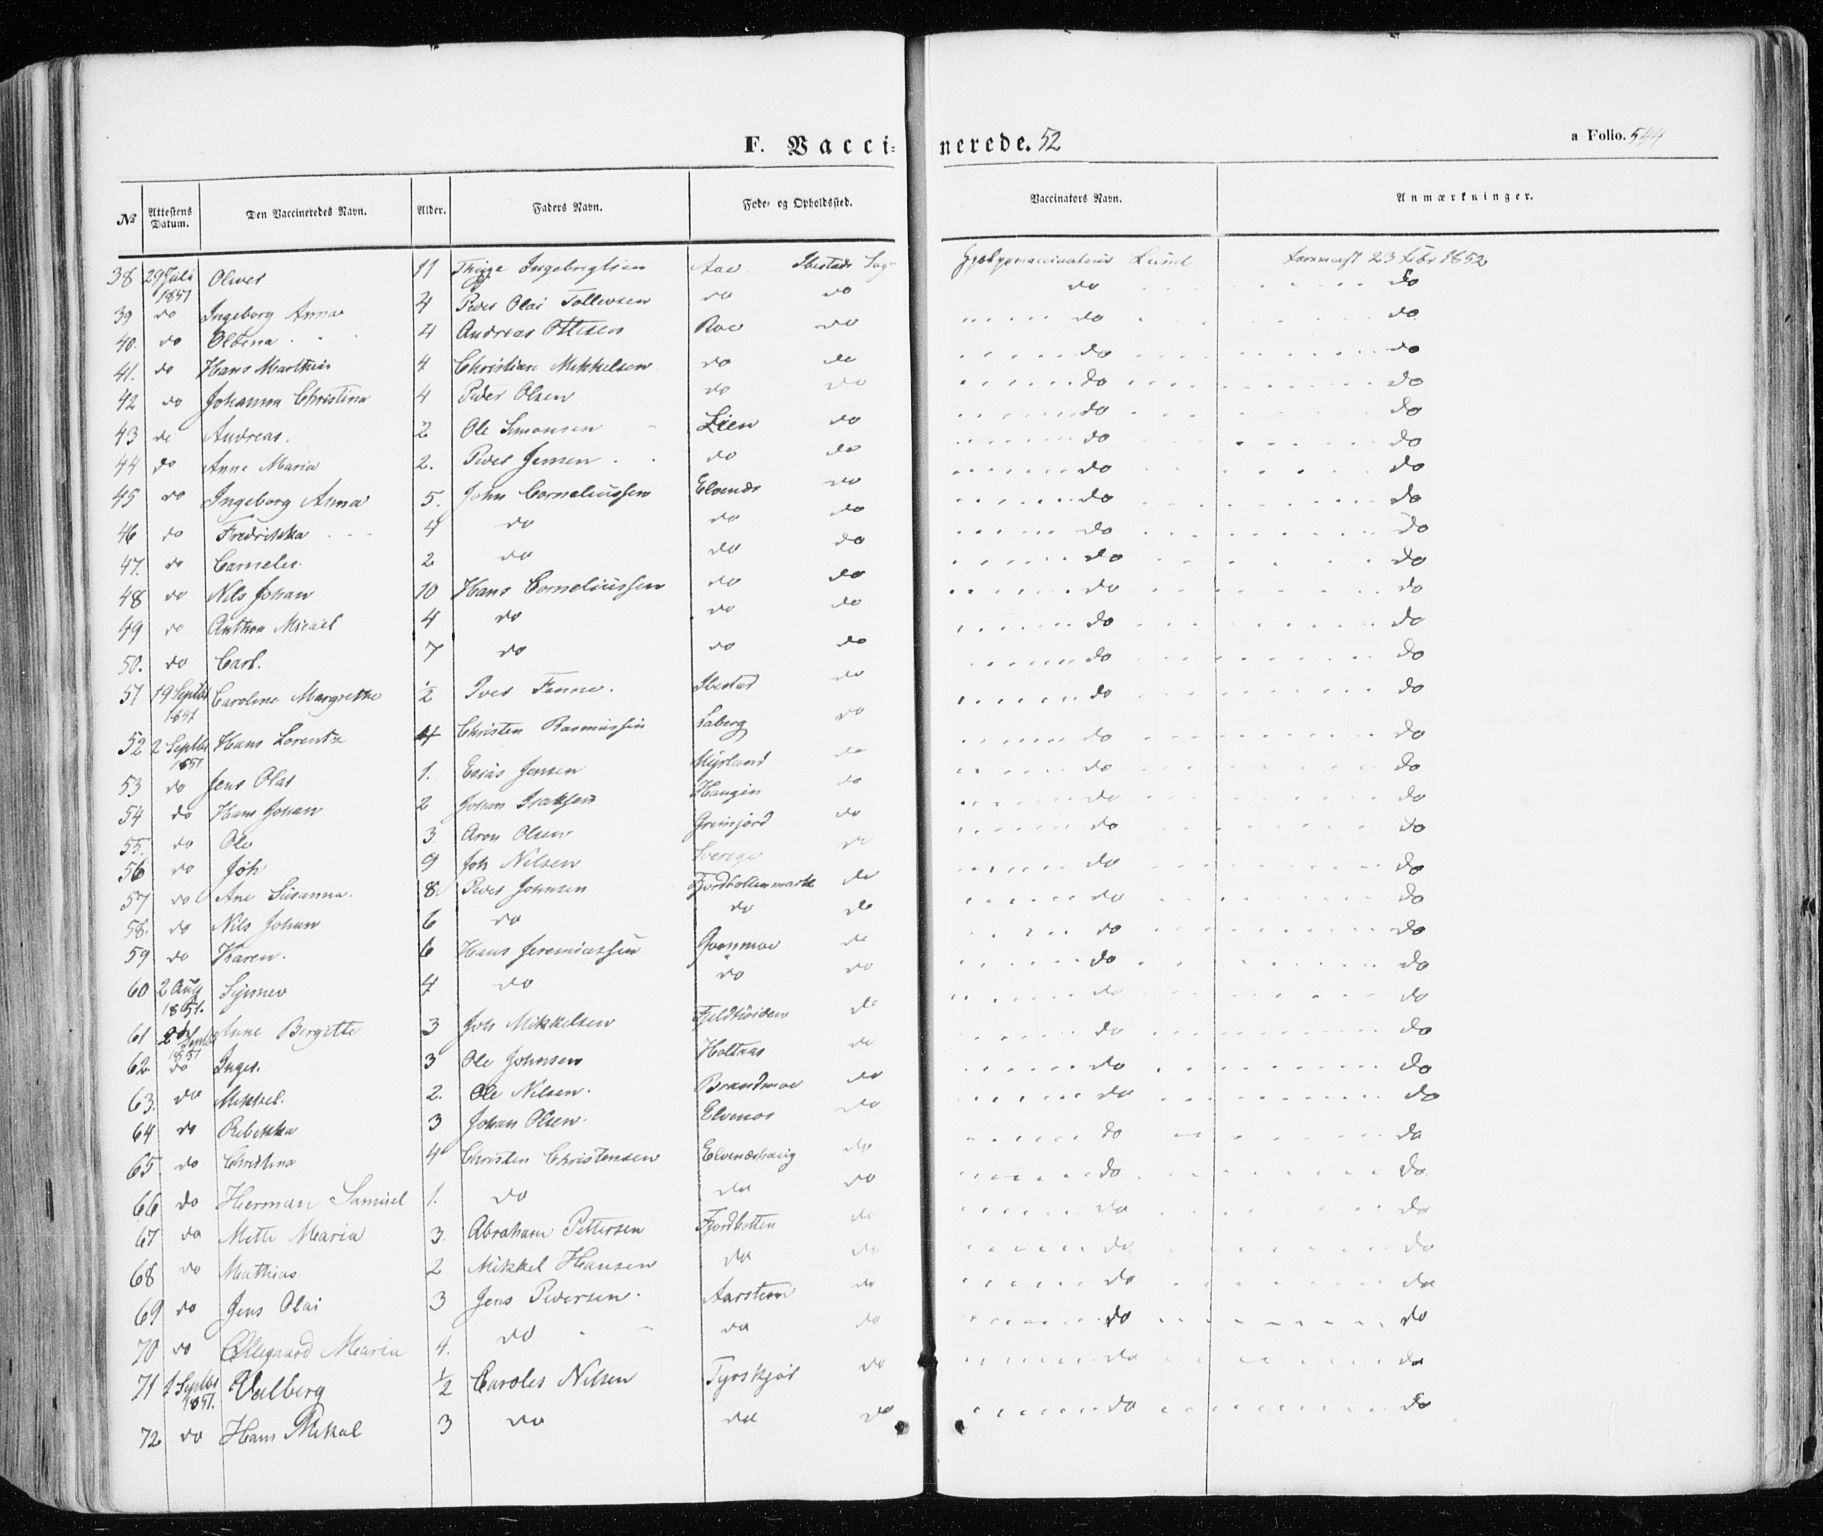 F. Vaccinerede. 52
a Folio. 544
No Attestens Datum. Den Vaccineredes Navn. Alder. Faders Navn. Føde- og Opholdssted. Vaccinators Navn. Anmærkninger.
38 29 Juli 1851 Oliver 11 Ingebrigtsen Aae Ibestads Sogn Hjælpevaccinateur Lund 23 Febr 1852
39 do Ingeborg Anna 4 Peder Olai Tollevsen do do do do
40. do Oldina 4 Andreas Ottesen Roe do do do
41. do Hans Marthin 4 Christian Mikkelsen do do do do
42 do Johanna Christina 4 Peder Olsen do do do do
43 do Andreas. 2 Ole Simonsen Lien do do do
44 do Anne Maria 2. Peder Jensen do do do do
45 do Ingeborg Anna 5. John Corneliussen Elvenæs do do do
46 do Fredrikka 4 do do do do do
47. do Cornelis 2 do do do do do
48 do Nils Johan 10 Hans Corneliussen do do do do
49 do Anthon Micael 4 do do do do do
50. do Carl. 7 do do do do do
51 19 Septbr 1851 Caroline Margrethe ½ Ibestad do do do
52 2 Septbr 1851 Hans Lorentz 4 Christen Rasmussen Laberg do do do
53 do Jens Olai 1. Esais Jensen Myrland do do do
54 do Hans Johan 2 Johan Isaksen Haugen do do do
55. do Ole 3. Aron Olsen do do do
56 do Joh 9 Joh Nilsen Sverige do do do
57 do Ane Susanna. 8. Peder Johnsen Fjordbottenmark do do do
58. do Nils Johan 6 do do do do do
59 do Karen. 6 Hans Jeremiassen do do do
60 2 Aug 1851. Synnev 4 do do do do do
61 Septbr 1851 Anne Bergitte 3 Joh Mikkelsen do do do
62. do Inger. 3 Ole Johnsen Holtaas do do do
63. do Mikkel. 2. Ole Nilsen. Brandmoe do do do
64 do Rebekka 3 Johan Olsen. Elvenes do do do
65 do Christina 4 Christen Christensen Elvenæshaug do do do
66 do Herman Samuel 1. do do do do do
67 do Mette Maria 3. Abraham Pettersen Fjordbotten do do do
68 do Mathias 2 Mikkel Hansen do do do do
69 do Jens Olai 3 Jens Pedersen. Aarstein do do do
70 do Ollegaard Maria 4. do do do do do
71 1 Septbr 1851. Valberg ½ Caroles Nilsen do do do
72 do Hans Mikal 3 do do do do do